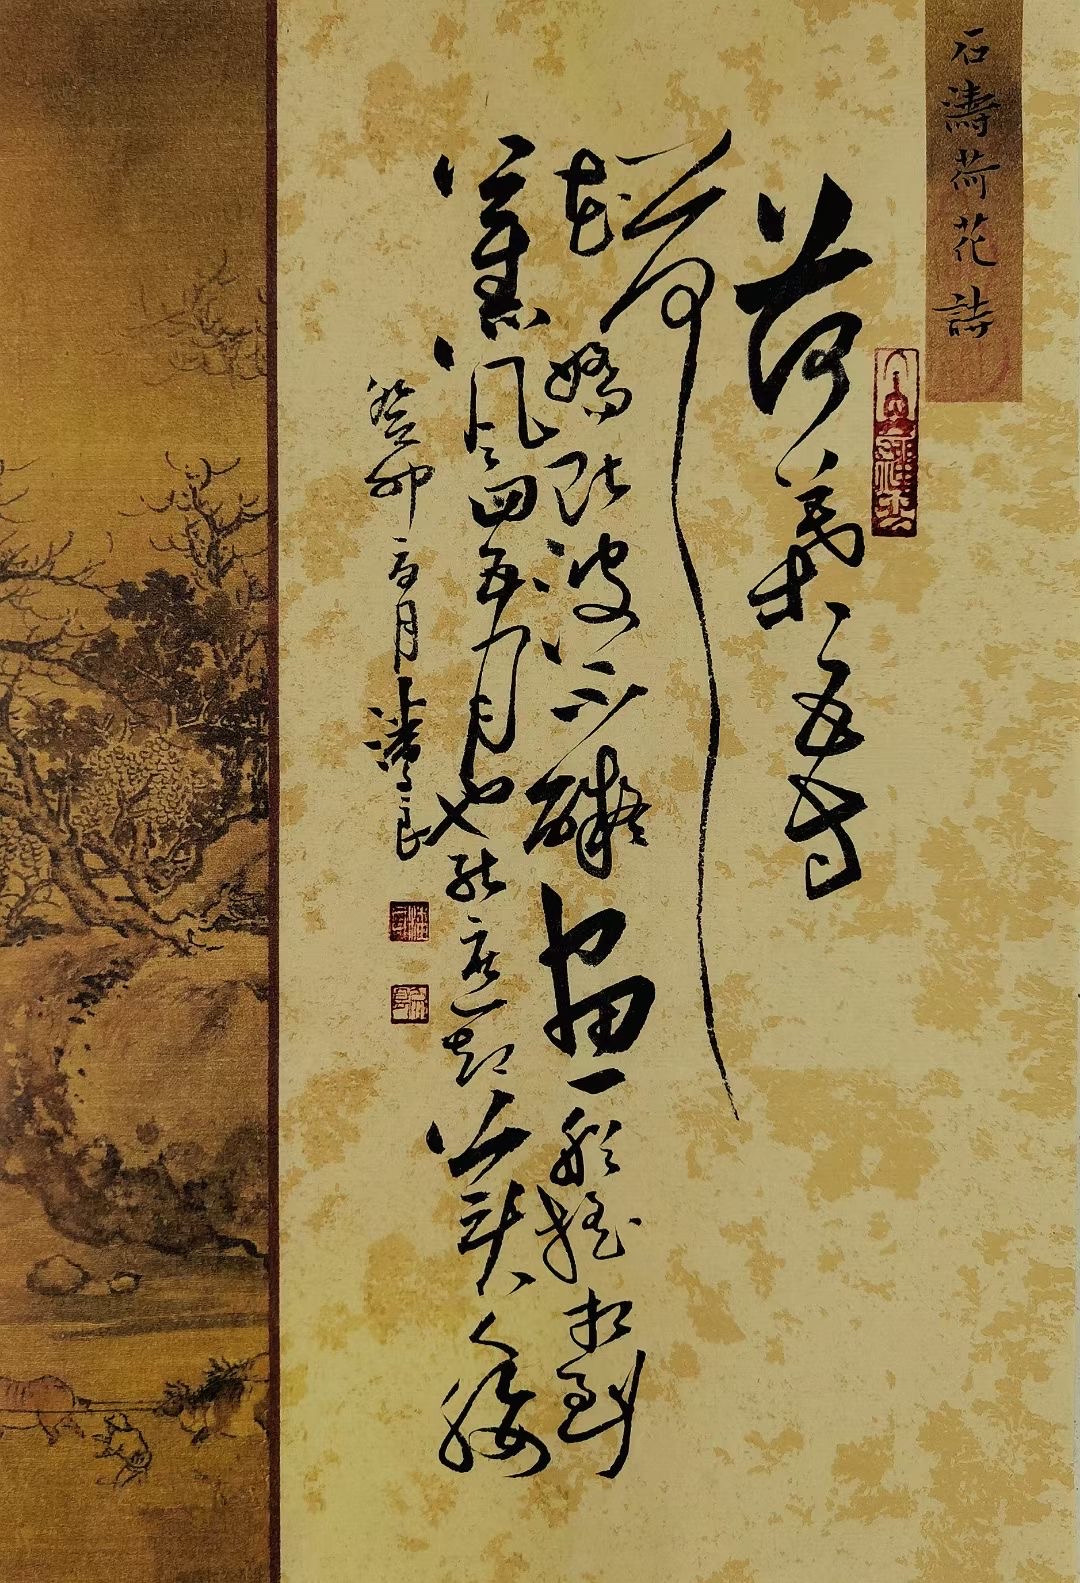 石濤荷花詩
荷葉五寸
荷
花嬌貼波不礙畫船搖相到
薰風四五月也能遮却美人腰
癸卯 月潘良